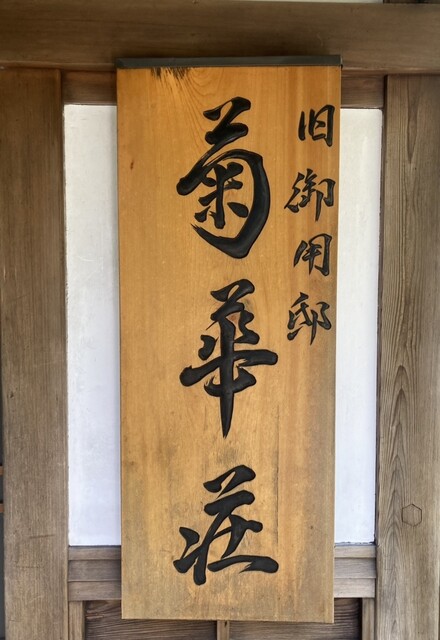 旧御用邸
菊華荘